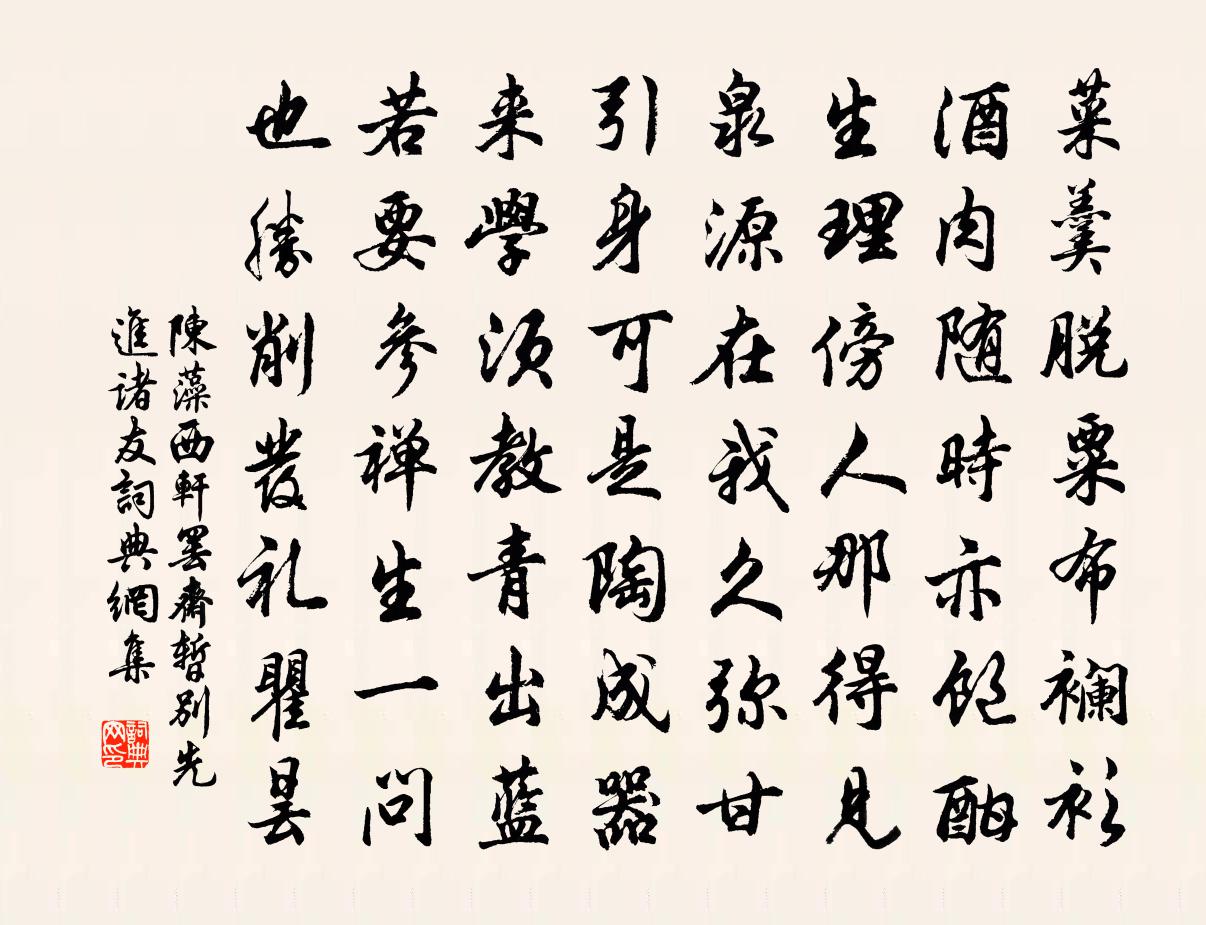 菜羹脱粟布襴衫
酒肉随時亦飽酣
生理傍人那得見
泉源在我久弥甘
引身可是陶成器
来學須教青出藍
若要參禅生一問
也勝削發礼瞿昙
陳藻西軒罢齋暫別先
進諸友詞典網集
詞典
网印